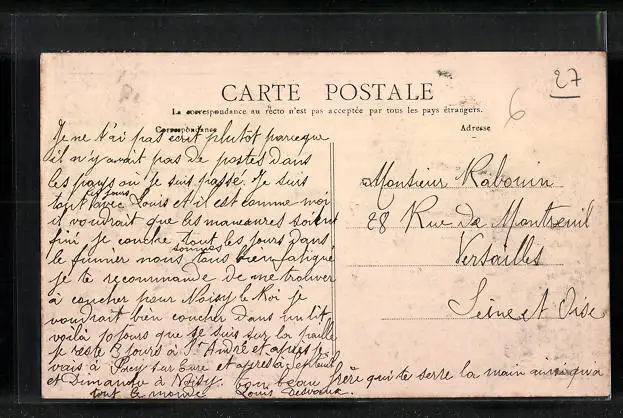 27
6
CARTE POSTALE
La correspondance au recto n'est pas acceptée par tous les pays étrangers.
Correspondance
Adresse
Je ne t'ai pas écrit plutot parceque
il n'y avait pas de postes dans
les pays où je suis passé. Je suis
tout les jours avec Louis et il est comme moi
il voudrait que les manœuvres soient
fini je couche tout les jours dans
le fumier nous sommes tous bien fatigué
je te recommande de me trouver
à coucher pour Noisy le Roi je
voudrait bien coucher dans un lit
voilà jours que je suis sur la paille
je reste 3 jours à St André et après je
vais à Pacy sur Eure et après à
et Dimanche à Noisy. Ton beau frère qui te serre la main ainsi qu'à
tout le monde Louis
Monsieur Rabouin
28 Rue de Montreuil
Versailles
Seine et Oise